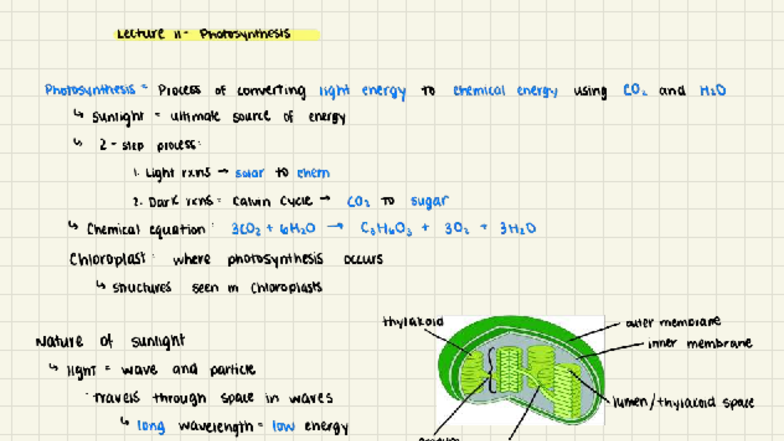 Lecture 11- Photosynthesis
Photosynthesis = Process of converting light energy to chemical energy using CO₂ and H₂O
↳ Sunlight = ultimate source of energy
↳ 2-step process:
1. Light rxns → solar to chem
2. Dark rxns = Calvin Cycle → CO₂ to sugar
↳ Chemical equation: 3CO₂ + 6H₂O → C₃H₆O₃ + 3O₂ + 3H₂O
Chloroplast: where photosynthesis occurs
↳ structures seen in chloroplasts
thylakoid
outer membrane
inner membrane
lumen/thylakoid space
Nature of sunlight
↳ light = wave and particle
· travels through space in waves
↳ long wavelength = low energy